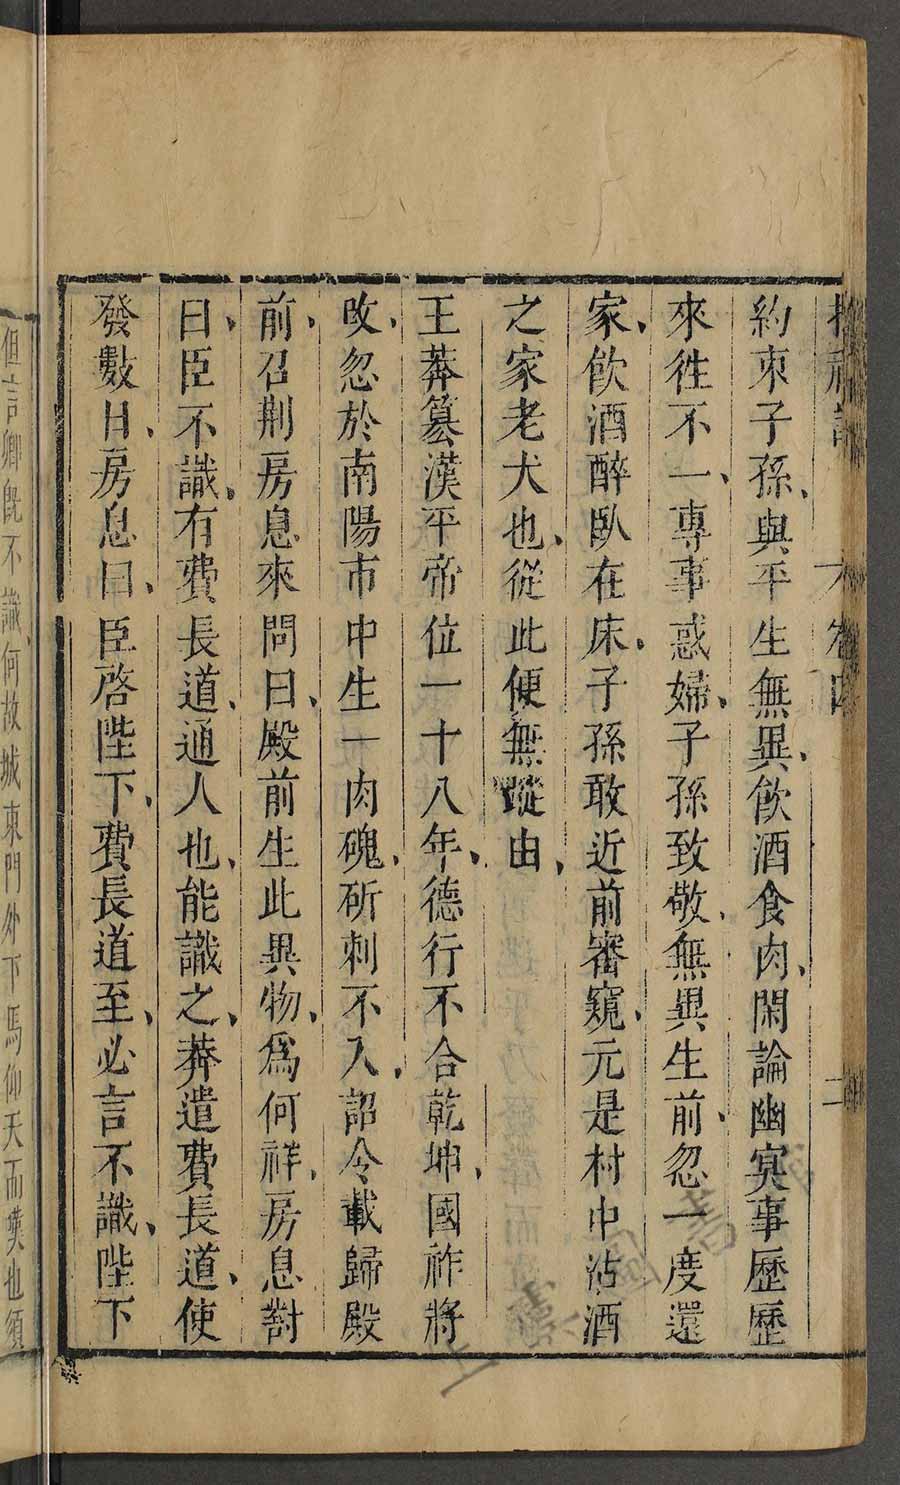 搜神記　卷四　二
約束子孫、與平生無異、飲酒食肉、閑論幽冥事歷歷
來徃不一、專事惑婦、子孫致敬、無異生前、忽一度還
家、飲酒醉臥在床、子孫敢近前審窺、元是村中沽酒
之家老犬也、從此便無蹤由、
王莽篡漢平帝位一十八年、德行不合乾坤、國祚將
改、忽於南陽市中生一肉磈、斫刺不入、詔令載歸殿
前、召荆房息來問曰、殿前生此異物、爲何祥、房息對
曰、臣不識、有費長道、通人也、能識之、莽遣費長道、使
發數日、房息曰、臣啓陛下、費長道至、必言不識、陛下
但言卿旣不識、何故城東門外下馬仰天而嘆也須